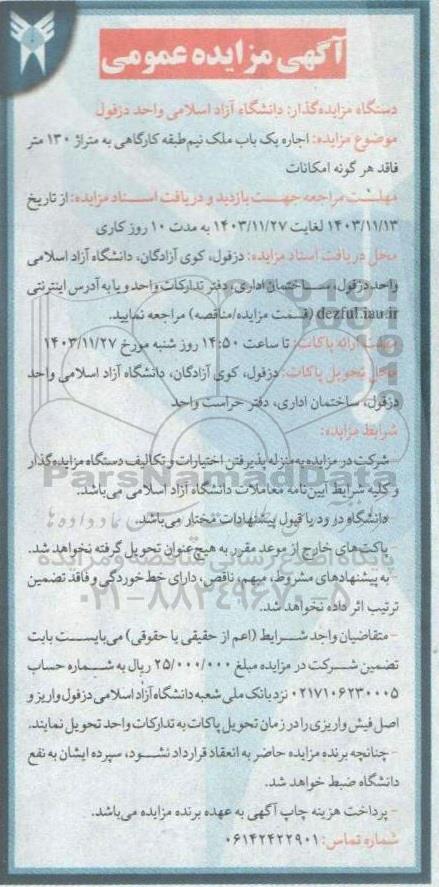 آگهی مزایده عمومی
دستگاه مزایده‌گذار: دانشگاه آزاد اسلامی واحد دزفول
موضوع مزایده: اجاره یک باب ملک نیم‌طبقه کارگاهی به متراژ ۱۳۰ متر
فاقد هر گونه امکانات
مهلت مراجعه جهت بازدید و دریافت اسناد مزایده: از تاریخ
۱۴۰۳/۱۱/۱۳ لغایت ۱۴۰۳/۱۱/۲۷ به مدت ۱۰ روز کاری
محل دریافت اسناد مزایده: دزفول، کوی آزادگان، دانشگاه آزاد اسلامی
واحد دزفول، ساختمان اداری، دفتر تدارکات واحد و یا به آدرس اینترنتی
dezful.iau.ir (قسمت مزایده/مناقصه) مراجعه نمایید.
مهلت ارائه پاکات: تا ساعت ۱۴:۵۰ روز شنبه مورخ ۱۴۰۳/۱۱/۲۷
محل تحویل پاکات: دزفول، کوی آزادگان، دانشگاه آزاد اسلامی واحد
دزفول، ساختمان اداری، دفتر حراست واحد
شرایط مزایده:
- شرکت در مزایده به منزله پذیرفتن اختیارات و تکالیف دستگاه مزایده‌گذار
و کلیه شرایط آیین‌نامه معاملات دانشگاه آزاد اسلامی می‌باشد.
دانشگاه در رد یا قبول پیشنهادات مختار می‌باشد.
- پاکت‌های خارج از موعد مقرر به هیچ عنوان تحویل گرفته نخواهد شد.
- به پیشنهادهای مشروط، مبهم، ناقص، دارای خط خوردگی و فاقد تضمین
ترتیب اثر داده نخواهد شد.
- متقاضیان واجد شرایط (اعم از حقیقی یا حقوقی) می‌بایست بابت
تضمین شرکت در مزایده مبلغ ۲۵/۰۰۰/۰۰۰ ریال به شماره حساب
۰۲۱۷۱۰۶۲۳۰۰۰۵ نزد بانک ملی شعبه دانشگاه آزاد اسلامی دزفول واریز و
اصل فیش واریزی را در زمان تحویل پاکات به تدارکات واحد تحویل نمایند.
- چنانچه برنده مزایده حاضر به انعقاد قرارداد نشود، سپرده ایشان به نفع
دانشگاه ضبط خواهد شد.
- پرداخت هزینه چاپ آگهی به عهده برنده مزایده می‌باشد.
شماره تماس: ۰۶۱۴۲۴۲۲۹۰۱
ParsNamadData
پایگاه اطلاع رسانی مناقصه و مزایده
۰۲۱-۸۸۳۴۹۶۷۰-۵